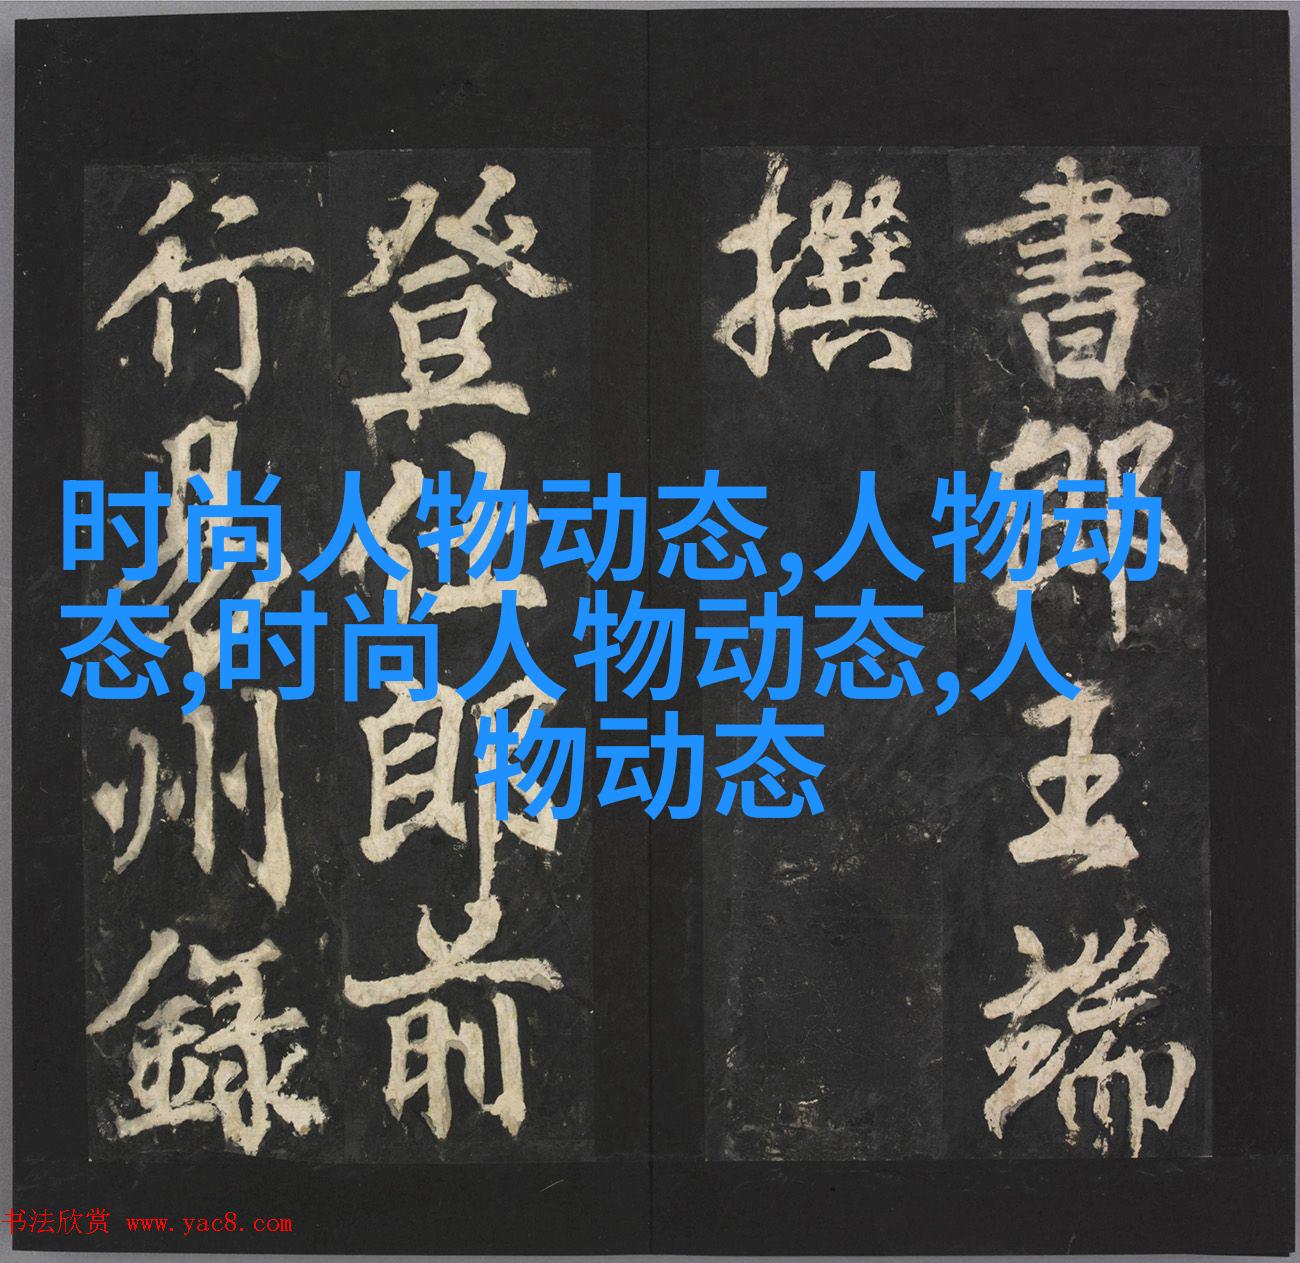 書郎王端
撰
登仕郎前
行易州錄
时尚人物动态,人物动
态,时尚人物动态,人
物动态
书法欣赏 www.yac8.com